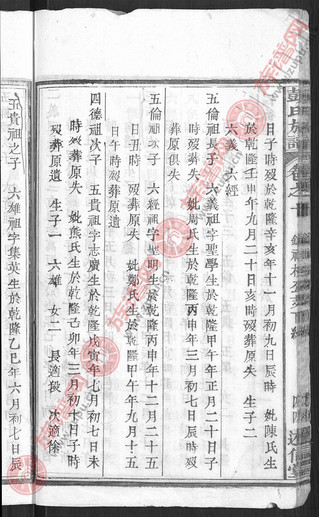 彭氏族譜 卷之
日子時歿於乾隆辛亥年十一月初九日辰時 妣陳氏生
於乾隆壬申年九月二十日亥時歿葬原失 生子二
六義 六經
五倫祖長子 六義祖字聖學生於乾隆甲午年正月二十日子
時歿葬失 妣周氏生於乾隆丙申年三月初七日辰時歿
葬原俱失
五倫祖次子 六經祖字聖明生於乾隆丙申年十二月二十五
日丑時歿葬原失 妣鄭氏生於乾隆甲午年九月十五
日午時歿葬原遺
四德祖次子 五貴祖字志廣生於乾隆戊寅年七月初七日未
時歿葬原失 妣熊氏生於乾隆己卯年三月初十日子時
歿葬原遺 生子一 六雄 女二 長適段 次適徐
五貴祖之子 六雄祖字集英生於乾隆乙巳年六月初七日辰